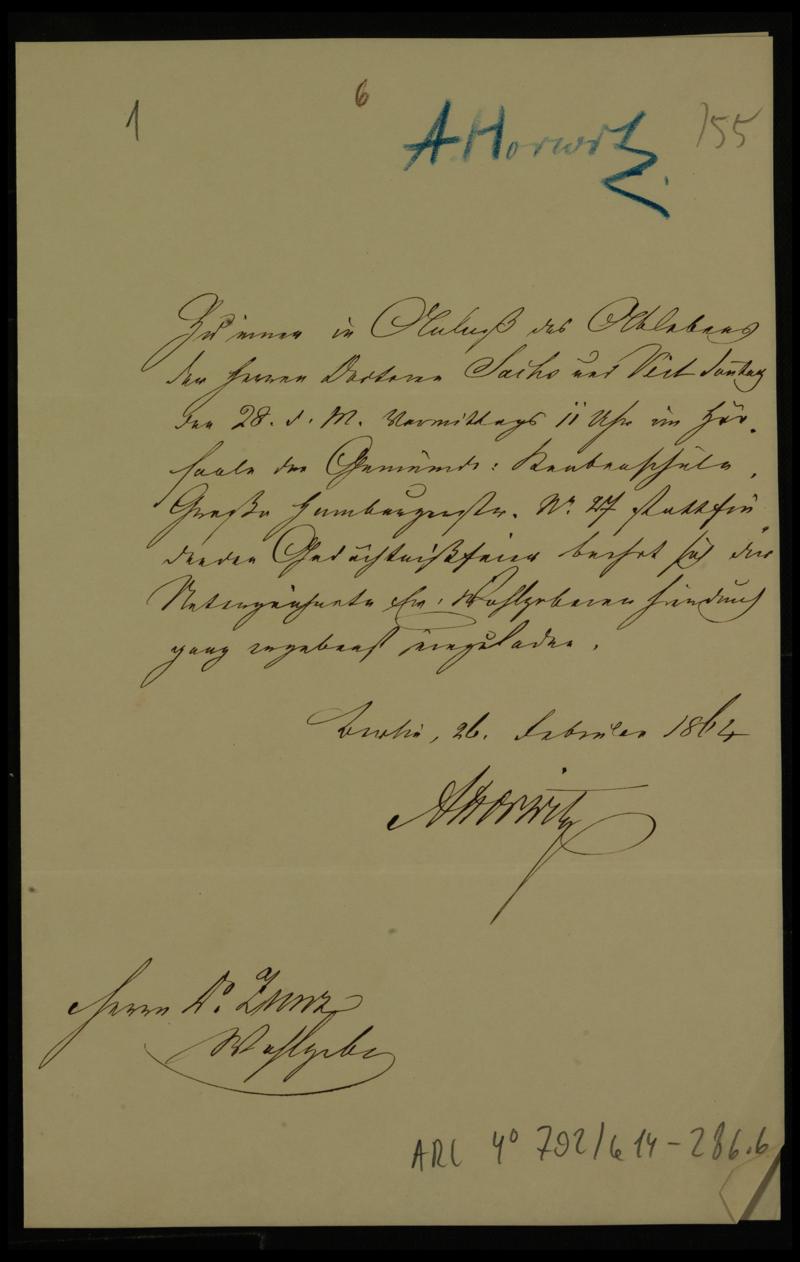 1
6
A. Horwitz
155
Zu einer in Anlaß des Ablebens
der Herren Doctoren Sachs und Veit Sontag
den 28. d. M. Vormittags 11 Uhr im Hör-
saale der Gemeinde: Knabenschule,
Große Hamburgerstr. No. 27 stattfin
denden Gedächtnißfeier beehrt sich der
Unterzeichnete Ew: Wohlgeboren hierdurch
ganz ergebenst einzuladen.
Berlin, 26. Februar 1864
A Horwitz
Herrn Dr. Zunz
Wohlgeb
ARC 4° 792/G14-286.6